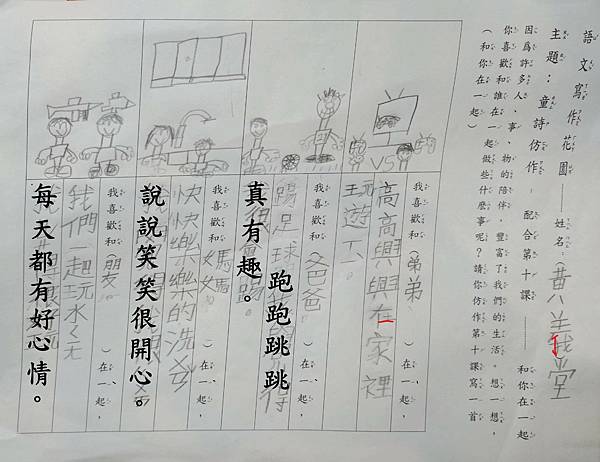 語文寫作花園
姓名：
主題：童詩仿作－配合第十課 和你在一起
因為許多人、事、物的陪伴，豐富了我們的生活。想一想，
你喜歡和誰在一起做些什麼事呢？請你仿作第十課寫一首
（和你在一起）
VS
我喜歡和（弟弟、）在一起，
高高興興在家裡
玩遊
我喜歡和（爸爸、）在一起，
踢足球
跑跑跳跳
真有趣。
我喜歡和（媽媽、）在一起，
快快樂樂的洗
說說笑笑很開心。
我喜歡和（朋友、）在一起，
我們一起玩水
每天都有好心情。